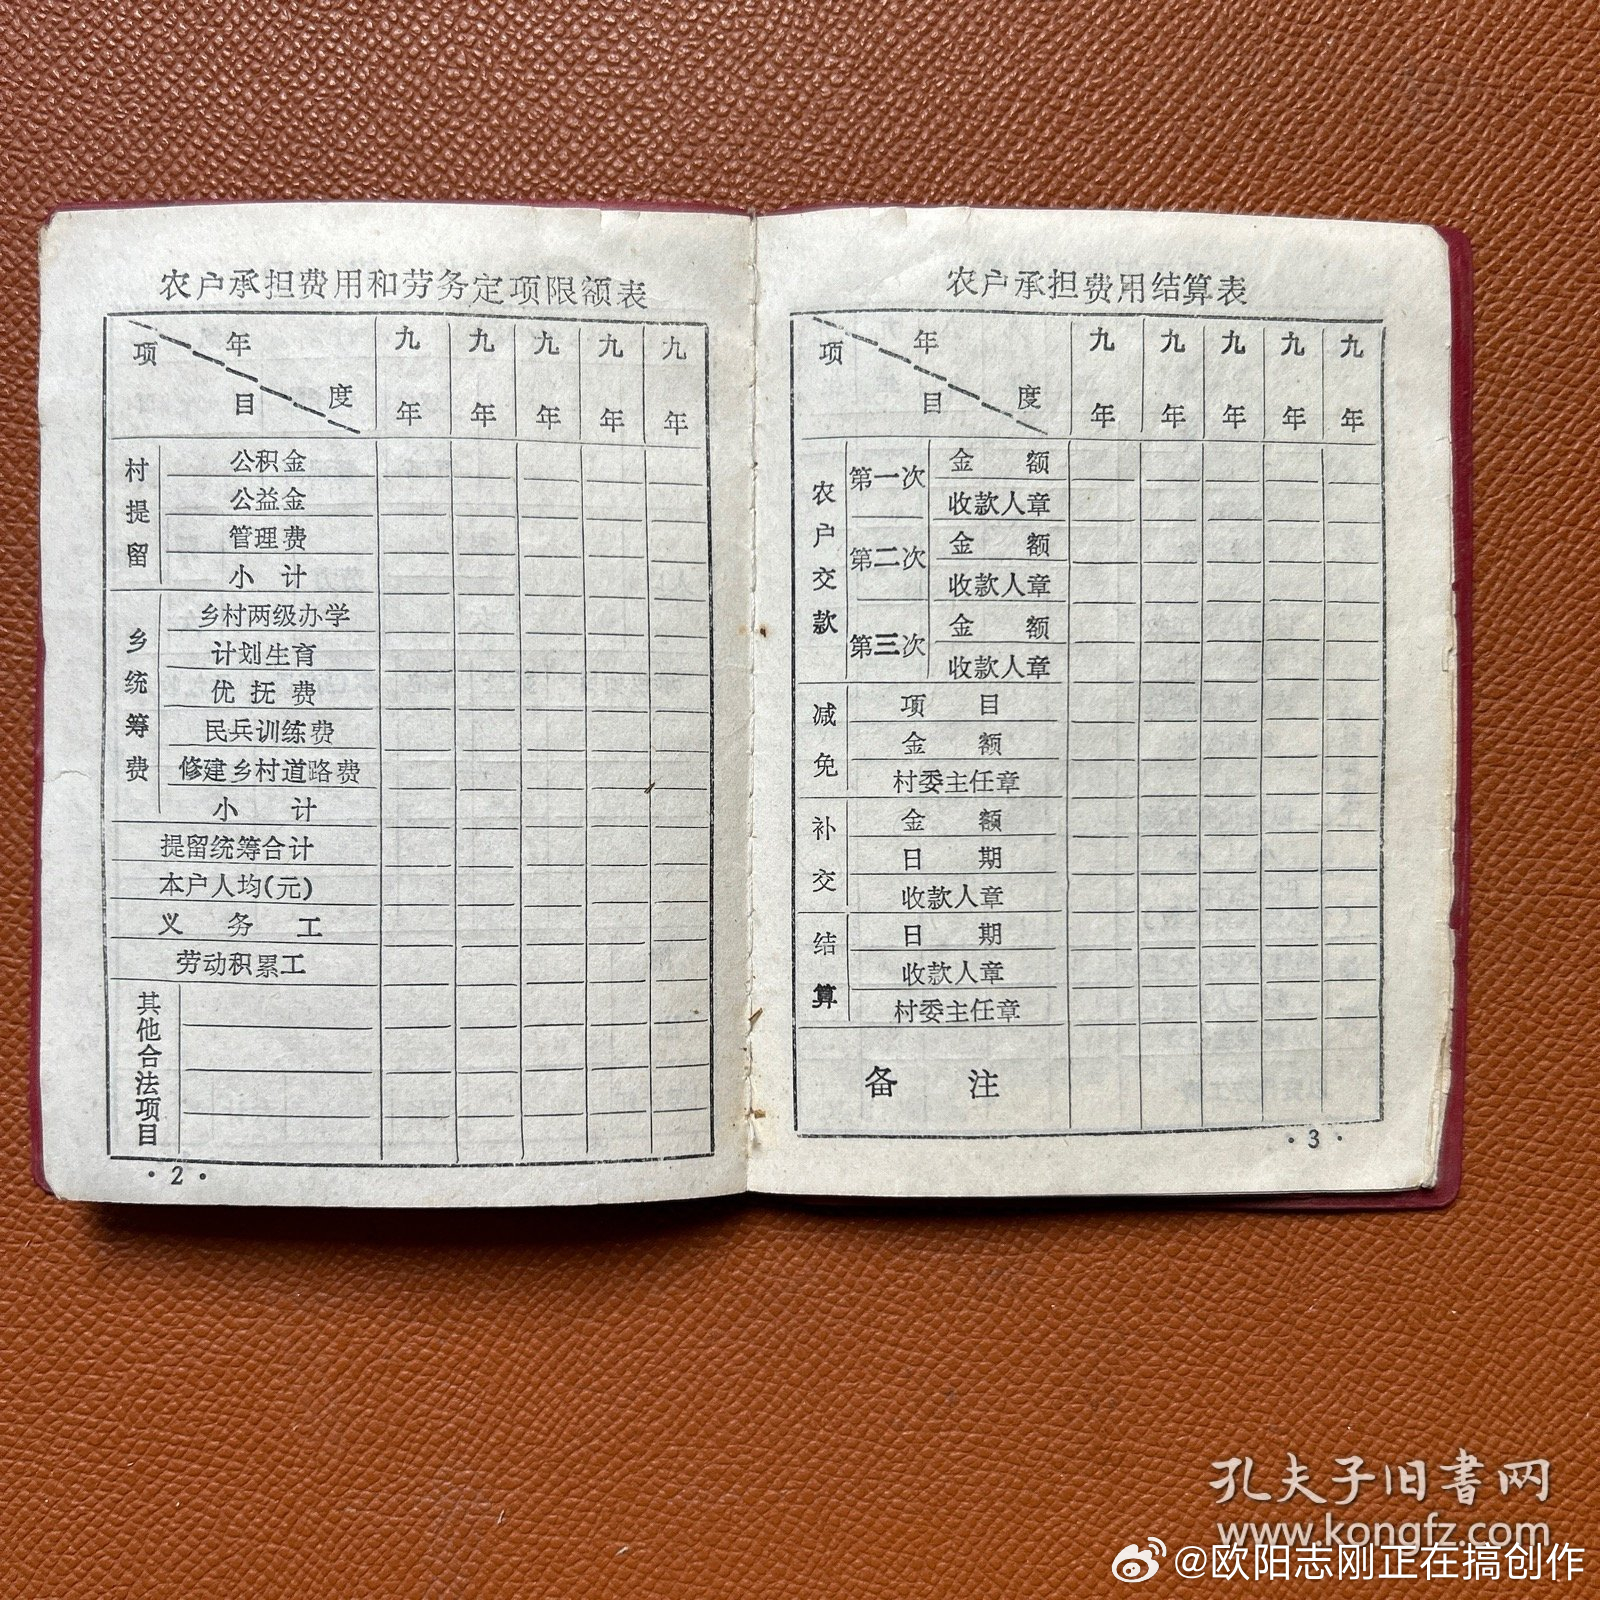 农户承担费用和劳务定项限额表
项 年 目 度 九 年 九 年 九 年 九 年 九 年
村提留
公积金
公益金
管理费
小 计
乡统筹费
乡村两级办学
计划生育
优抚费
民兵训练费
修建乡村道路费
小 计
提留统筹合计
本户人均(元)
义 务 工
劳动积累工
其他合法项目
·2·
农户承担费用结算表
项 年 目 度 九 年 九 年 九 年 九 年 九 年
农户交款
第一次
金 额
收款人章
第二次
金 额
收款人章
第三次
金 额
收款人章
减免
项 目
金 额
村委主任章
补交
金 额
日 期
收款人章
结算
日 期
收款人章
村委主任章
备 注
·3·
孔夫子旧书网
www.kongfz.com
@欧阳志刚正在搞创作